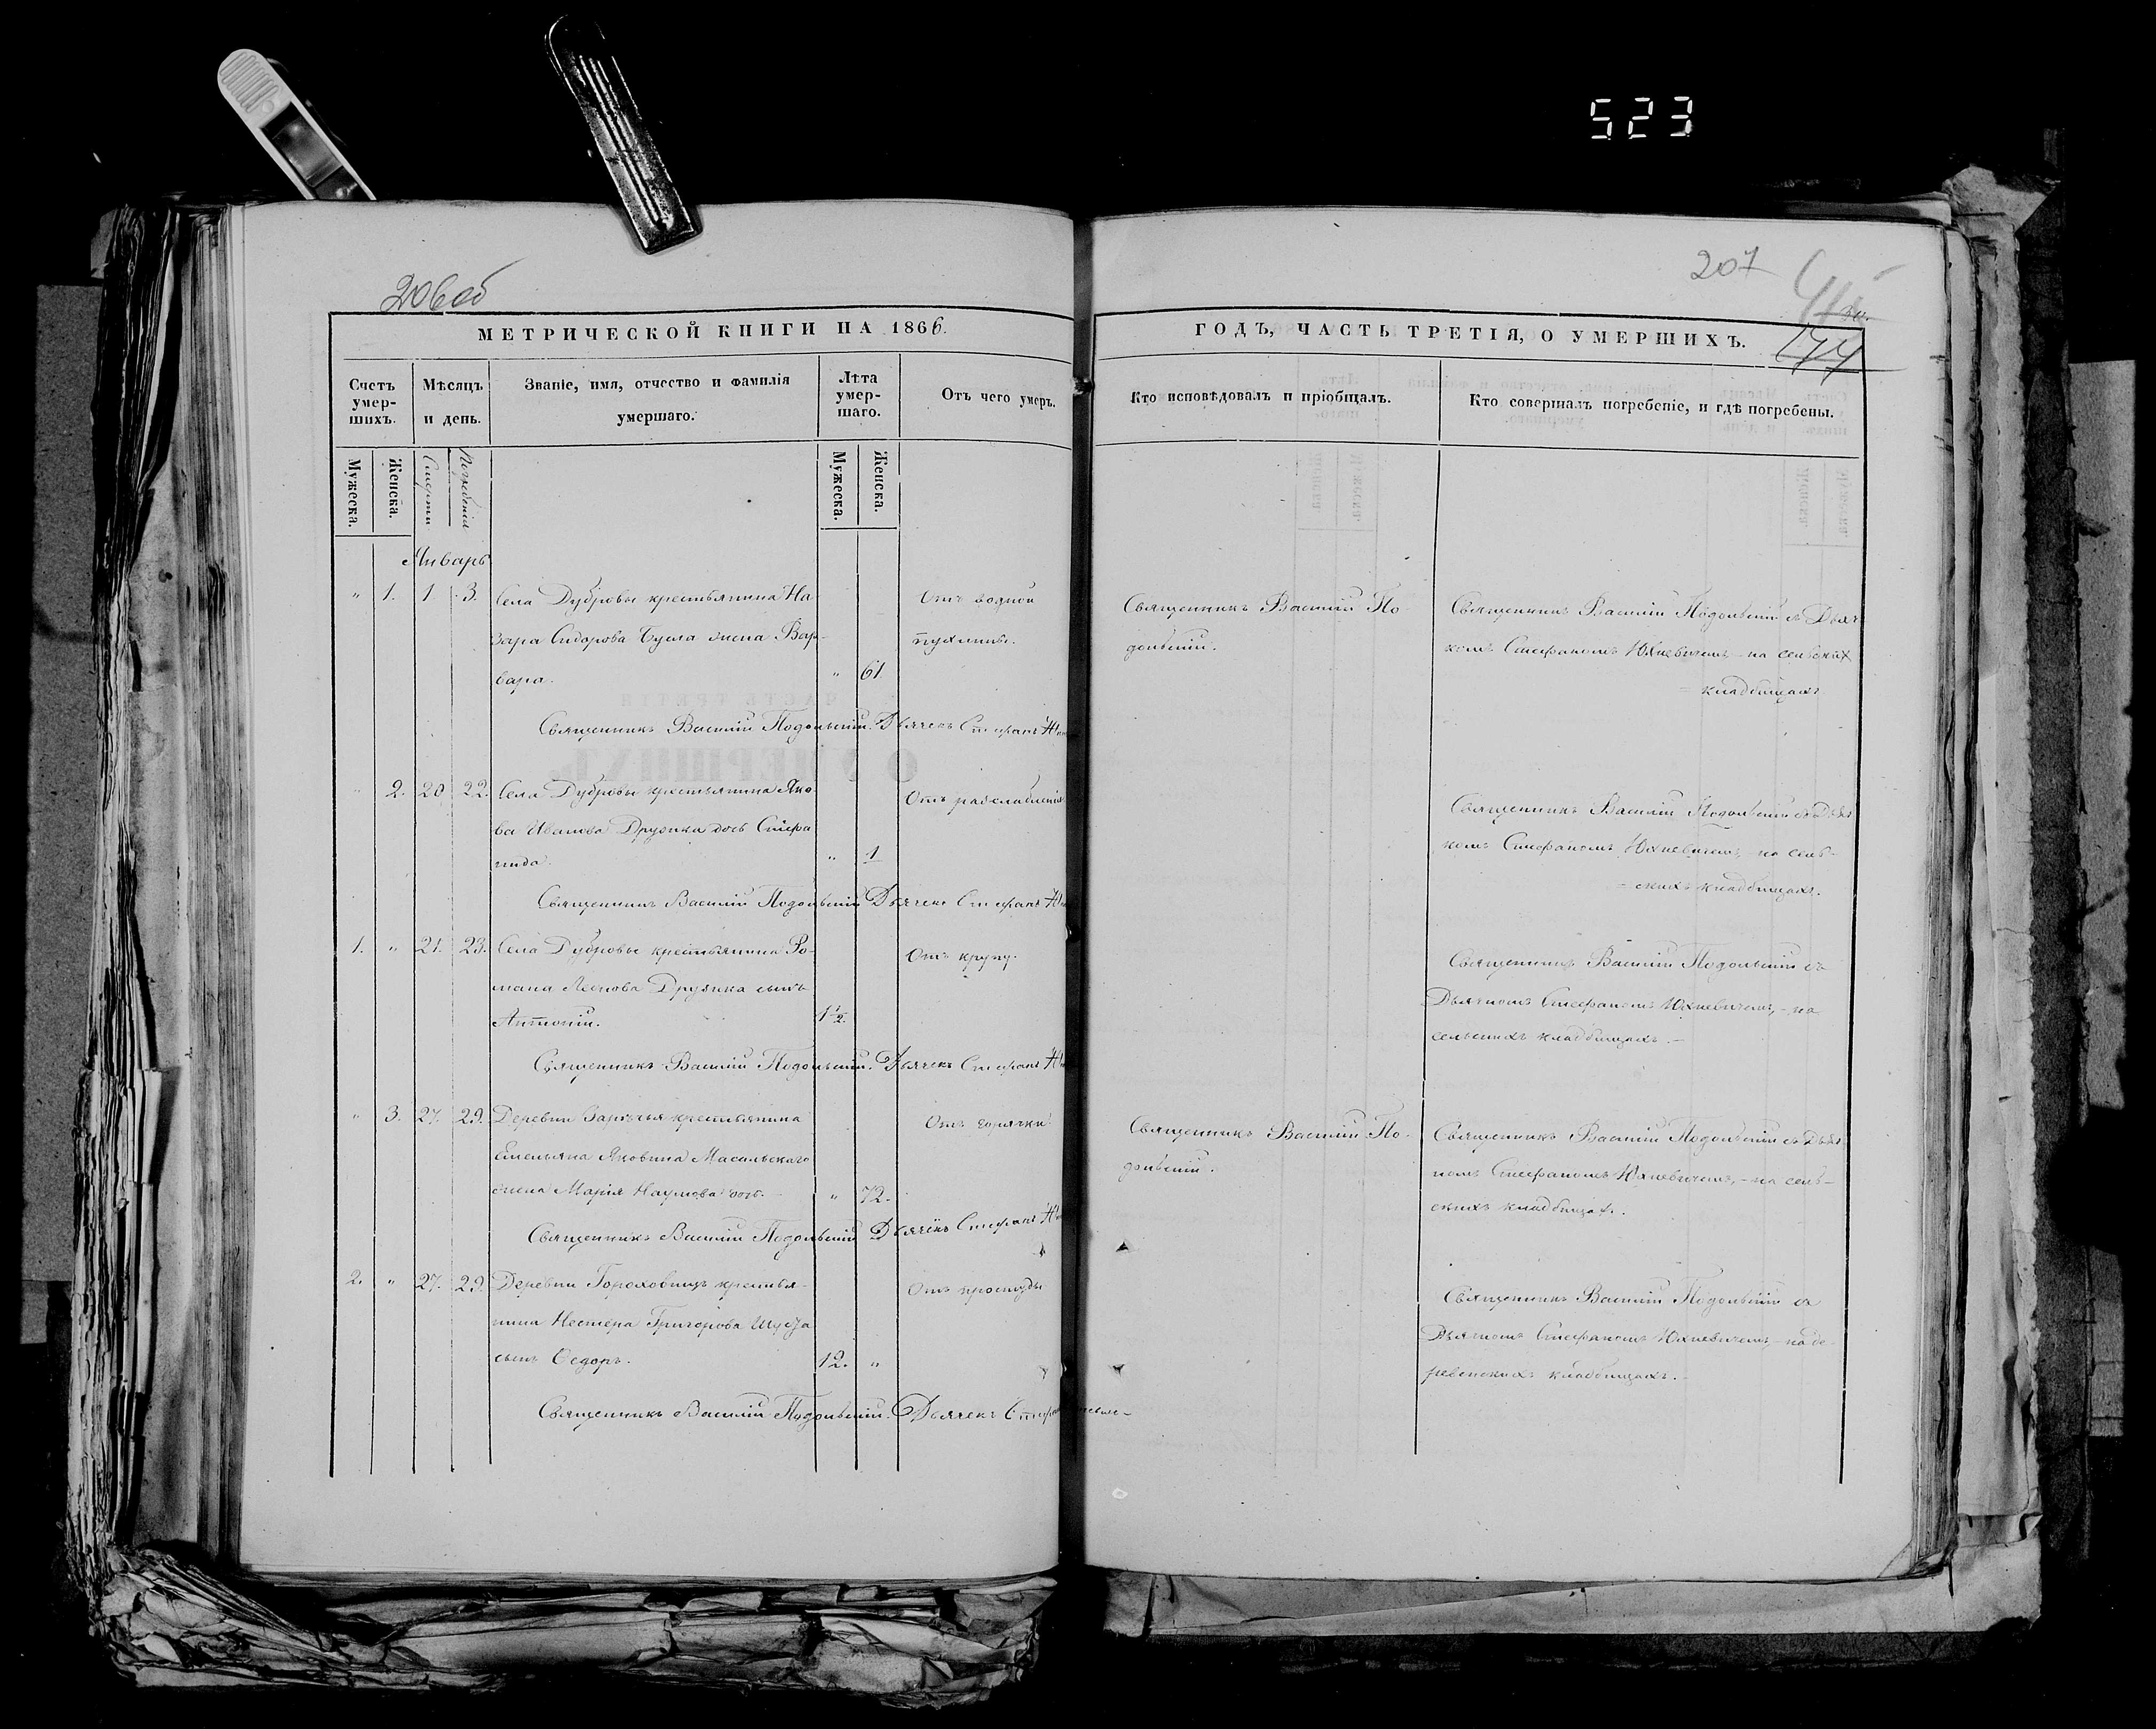 523
206об
207
МЕТРИЧЕСКОЙ КНИГИ НА 1866.
ГОДЪ, ЧАСТЬ ТРЕТІЯ, О УМЕРШИХЪ.
Счетъ умер-шихъ.
Мѣсяцъ и день.
Званіе, имя, отчество и фамилія умершаго.
Лѣта умер-шаго.
Отъ чего умеръ.
Кто исповѣдовалъ и пріобщалъ.
Кто совершалъ погребеніе, и гдѣ погребены.
Мужеска.
Женска.
Смерти
Погребенія
Мужеска.
Женска.
Январь
" 1. 1 3. Села Дубровы крестьянина На
зара Сидорова Бусла жена Вар-
вара. " 61
Отъ водяной
пухлины.
Священникъ Василій По
дольскій.
Священникъ Василій Подольскій съ Дьяч
комъ Стефаномъ Юхневичемъ на сельскихъ
кладбищахъ
Священникъ Василій Подольскій. Дьячекъ Стефанъ
" 2. 20 22. Села Дубровы крестьянина Яко
ва Иванова Друзика дочь Стефа
нида. " 1
Отъ разслабленія
Священникъ Василій Подольскій съ Дьяч
комъ Стефаномъ Юхневичемъ, на сель-
скихъ кладбищахъ.
Священникъ Василій Подольскій Дьячекъ Стефанъ
1. " 21. 23. Села Дубровы крестьянина Ро-
мана Друзика сынъ
Антоній. 1 1/2.
Отъ крупу.
Священникъ Василій Подольскій съ
Дьячкомъ Стефаномъ Юхневичемъ, - на
сельскихъ кладбищахъ. -
Священникъ Василій Подольскій. Дьячекъ Стефанъ
" 3. 27. 29. Деревни Зарѣчья крестьянина
Емельяна Яковина Масальскаго
жена Марія Наумова дочь. " 72.
Отъ горячки
Священникъ Василій По-
дольскій.
Священникъ Василій Подольскій съ Дьяч
комъ Стефаномъ Юхневичемъ, - на сель-
скихъ кладбищах.
Священникъ Василій Подольскій Дьячекъ Стефанъ
2. " 27. 29. Деревни Гороховищъ крестья-
нина Нестера Григорова
сынъ Ѳедоръ. 12. "
Отъ простуды
Священникъ Василій Подольскій съ
Дьячкомъ Стефаномъ Юхневичемъ, - на де-
ревенскихъ кладбищахъ. -
Священникъ Василій Подольскій. Дьячекъ